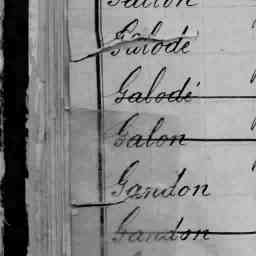 Galodé
Galodé
Galon
Gandon
Gandon